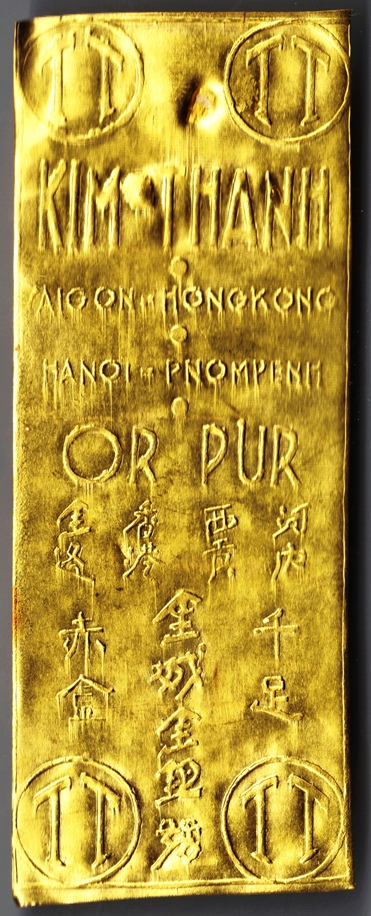 TT TT
KIM THANH
SAIGON ET HONGKONG
HANOI ET PNOMPENH
OR PUR
河內 西貢 香港
千足
金城金
赤金
TT TT